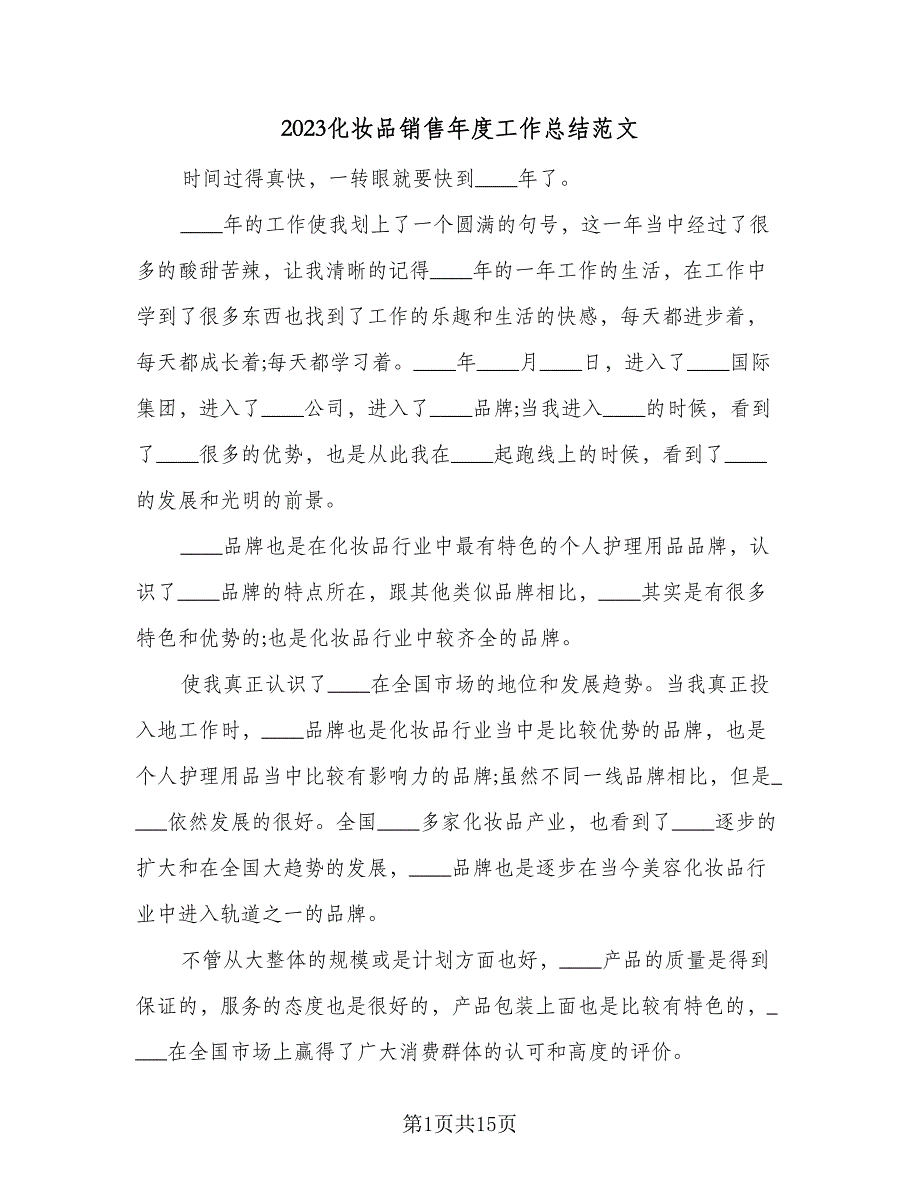 2023化妆品销售年度工作总结范文
时间过得真快，一转眼就要快到____年了。
____年的工作使我划上了一个圆满的句号，这一年当中经过了很
多的酸甜苦辣，让我清晰的记得____年的一年工作的生活，在工作中
学到了很多东西也找到了工作的乐趣和生活的快感，每天都进步着，
每天都成长着;每天都学习着。____年____月____日，进入了____国际
集团，进入了____公司，进入了____品牌;当我进入____的时候，看到
了____很多的优势，也是从此我在____起跑线上的时候，看到了____
的发展和光明的前景。
____品牌也是在化妆品行业中最有特色的个人护理用品品牌，认
识了____品牌的特点所在，跟其他类似品牌相比，____其实是有很多
特色和优势的;也是化妆品行业中较齐全的品牌。
使我真正认识了____在全国市场的地位和发展趋势。当我真正投
入地工作时，____品牌也是化妆品行业当中是比较优势的品牌，也是
个人护理用品当中比较有影响力的品牌;虽然不同一线品牌相比，但是_
___依然发展的很好。全国____多家化妆品产业，也看到了____逐步的
扩大和在全国大趋势的发展，____品牌也是逐步在当今美容化妆品行
业中进入轨道之一的品牌。
不管从大整体的规模或是计划方面也好，____产品的质量是得到
保证的，服务的态度也是很好的，产品包装上面也是比较有特色的，_
___在全国市场上赢得了广大消费群体的认可和高度的评价。
第1页共15页